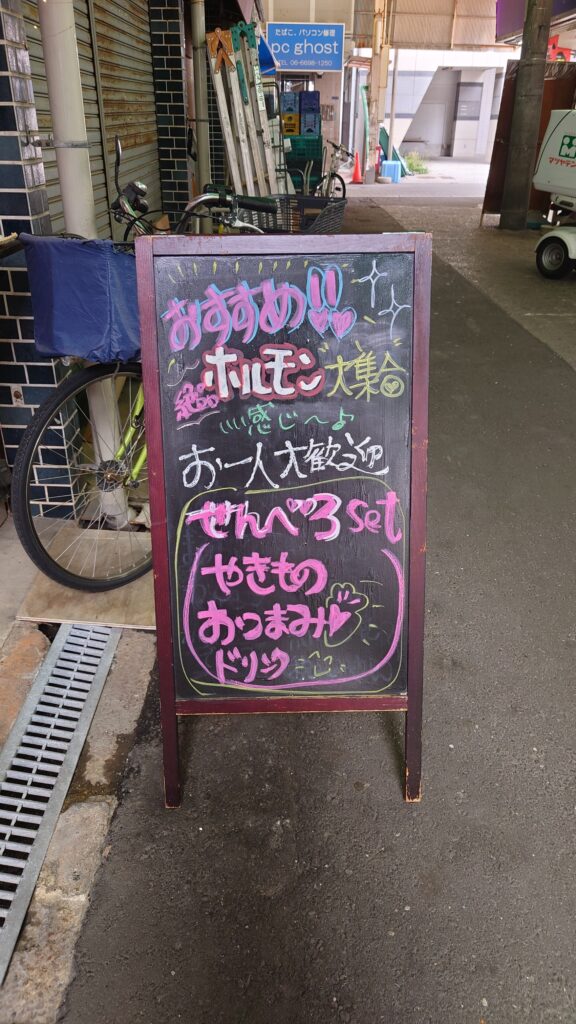 たばこ、パソコン修理
pc ghost
TEL 06-6698-1250
マツヤデン
おすすめ!!
ホルモン 大集合
絶品
感じ〜♪
お一人大歓迎
せんべろ set
やきもの
おつまみ
ドリンク